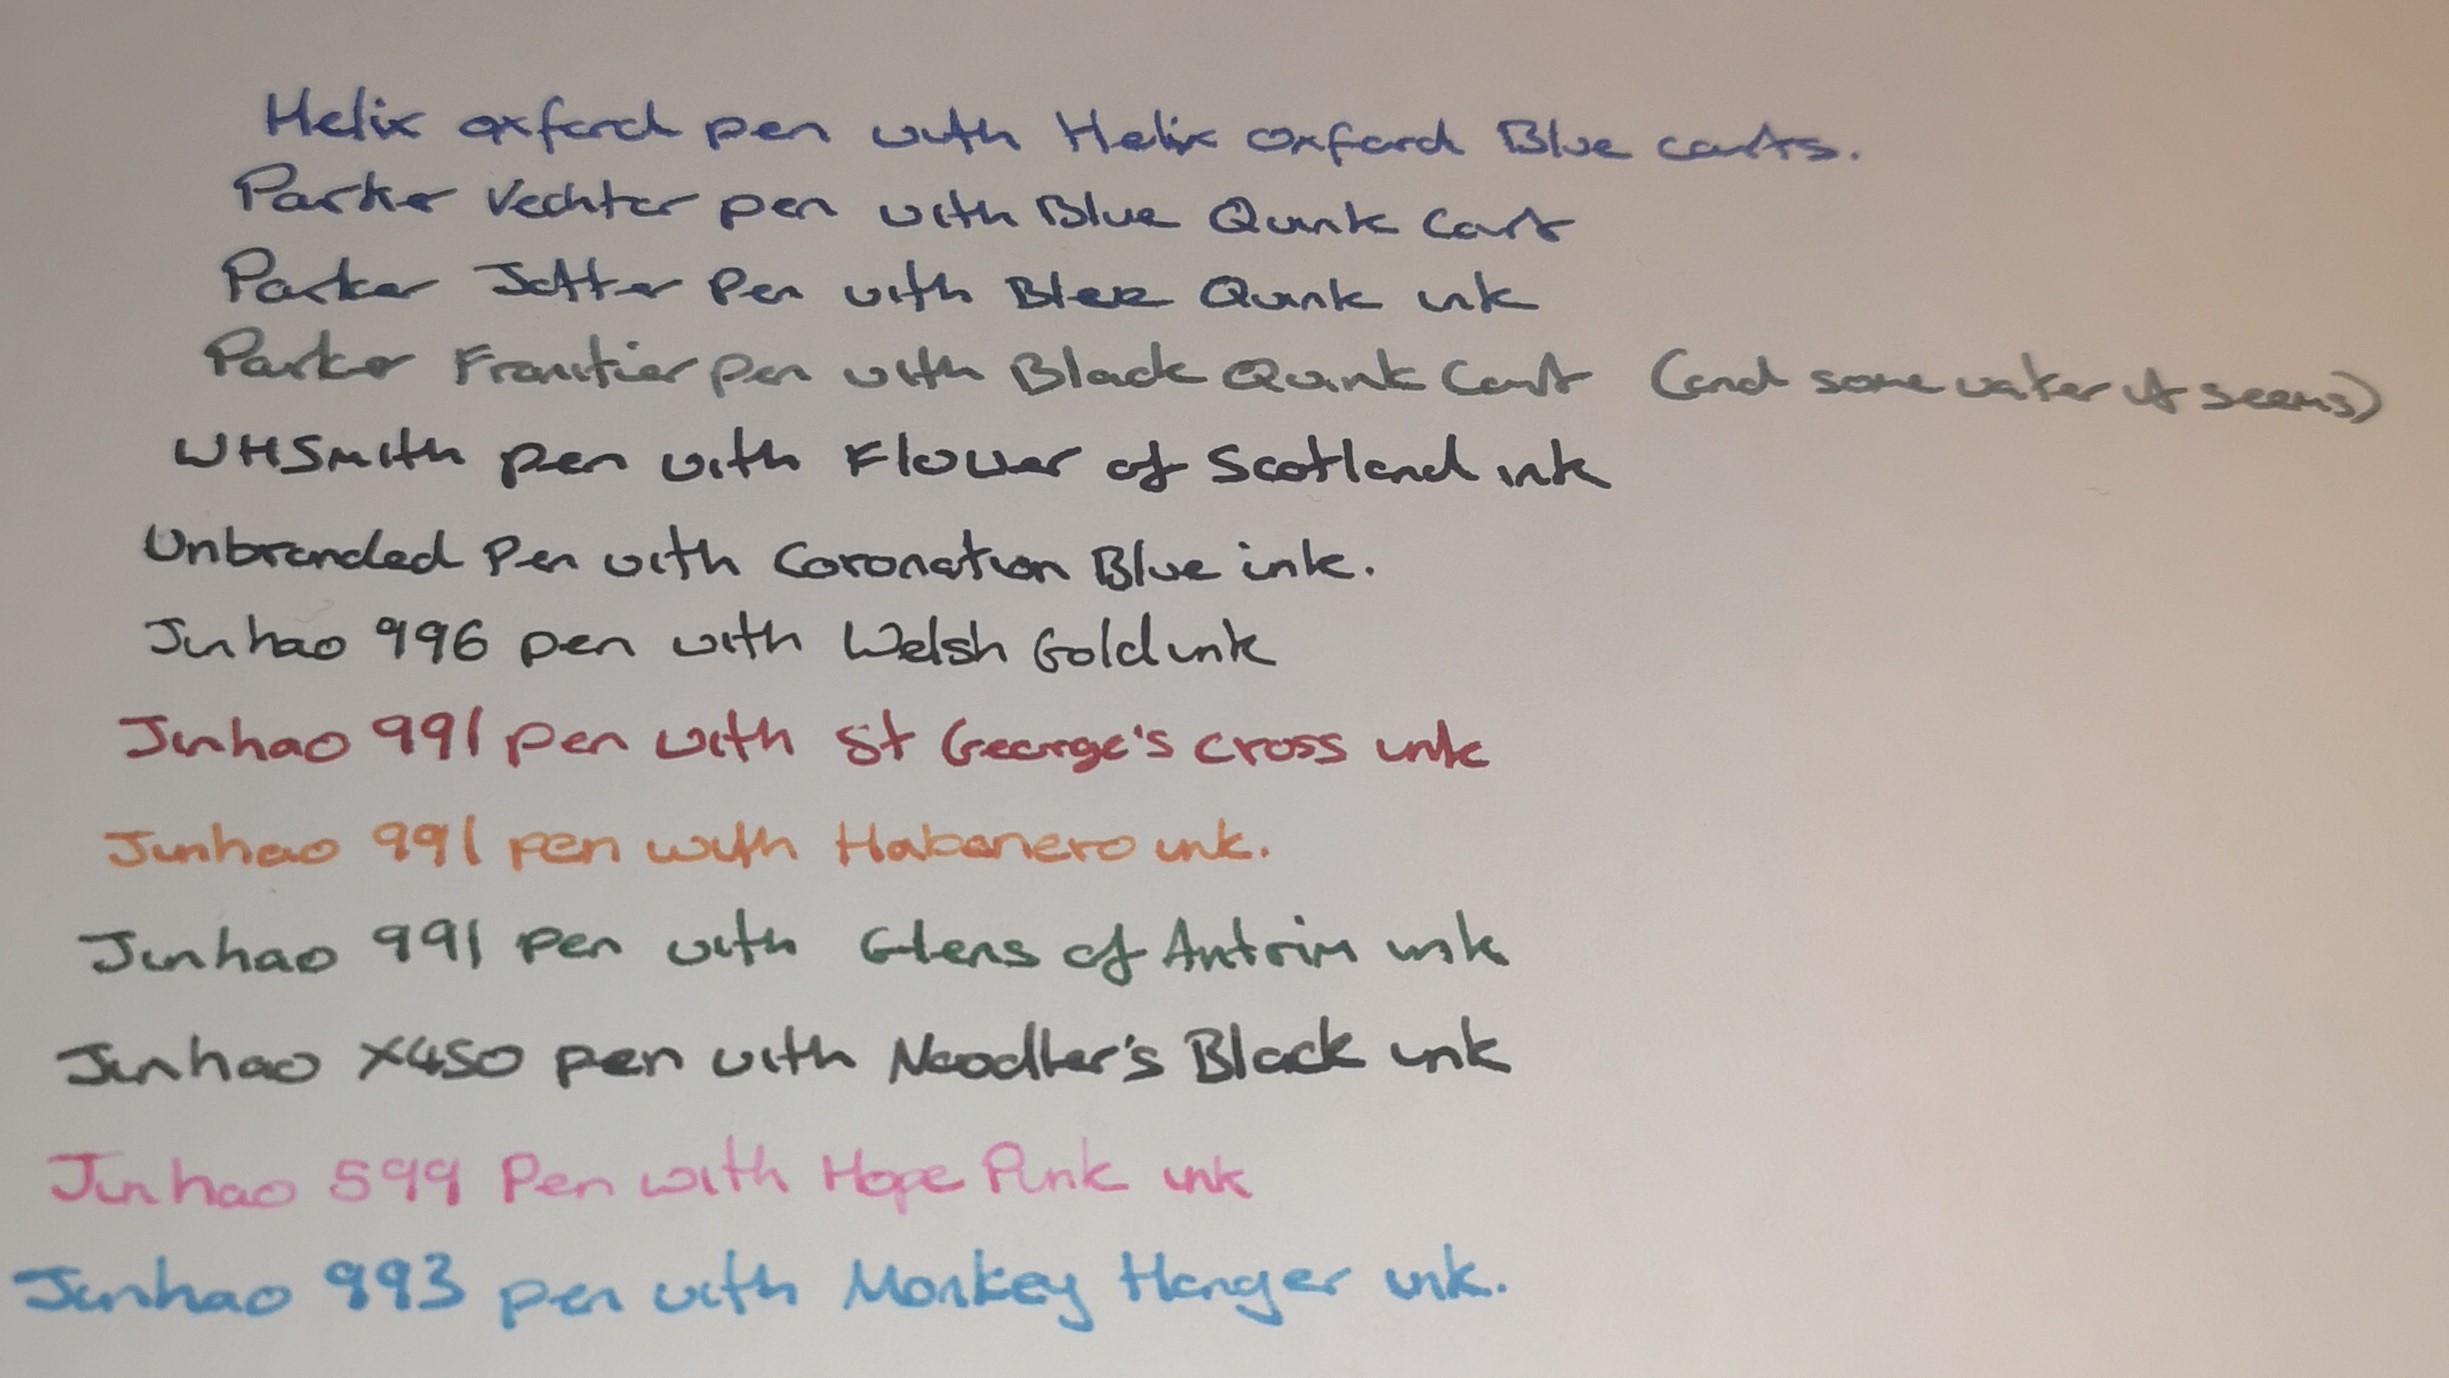 Helix oxford pen with Helix oxford Blue carts.
Parker Vechter pen with Blue Quink Cart
Parker Jotter Pen with Quink ink
Parker Frontier pen with Black Quink Cart (and some water it seems)
WHSmith pen with Flower of Scotland ink
Unbranded Pen with Coronation Blue ink.
Jinhao 996 pen with Welsh Gold ink
Jinhao 991 pen with St George's cross ink
Jinhao 991 pen with Habanero ink.
Jinhao 991 pen with Glens of Antrim ink
Jinhao X450 pen with Noodler's Black ink
Jinhao 599 Pen with Hope Punk ink
Jinhao 993 pen with Monkey Hanger ink.